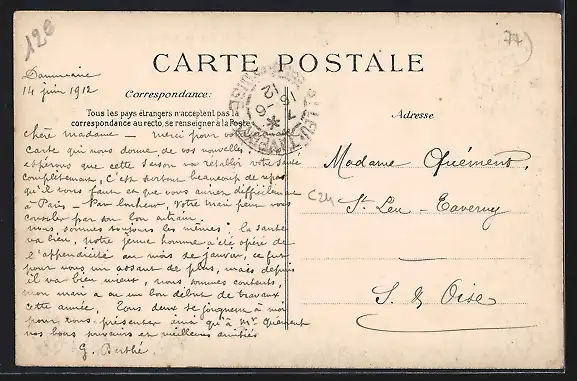 120
77
CARTE POSTALE
Dammarie
14 juin 1912
Correspondance:
Tous les pays étrangers n'acceptent pas la
correspondance au recto, se renseigner à la Poste
Adresse
ST LEU-TAVERNY
16-6
12
Chère madame — merci pour votre aimable
carte qui nous donne de vos nouvelles
espérons que cette saison va rétablir votre santé
complètement, c'est surtout beaucoup de repos
qu'il vous faut et que vous auriez difficilement
à Paris — Par bonheur, votre mari peut vous
consoler par son bon entrain.
nous, sommes toujours les mêmes : la santé
va bien, notre jeune homme a été opéré de
l'appendicite au mois de janvier, ce fut
pour nous un assaut de plus, mais depuis
il va bien mieux, nous sommes contents,
mon mari a eu un bon début de travaux
cette année, Tous deux se joignent à moi
pour vous présenter ainsi qu'à Mr Quément
nos bons souvenirs et meilleures amitiés
G. Berthé.
Madame Quément,
C24
St Leu - Taverny
S. & Oise